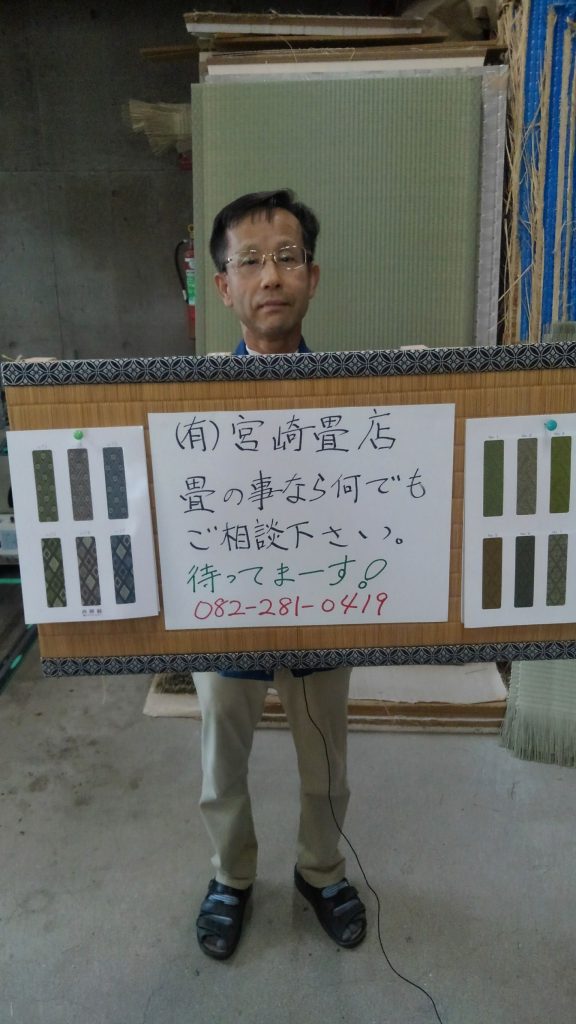 (有)宮崎畳店
畳の事なら何でも
ご相談下さい。
待ってまーす!
082-281-0419